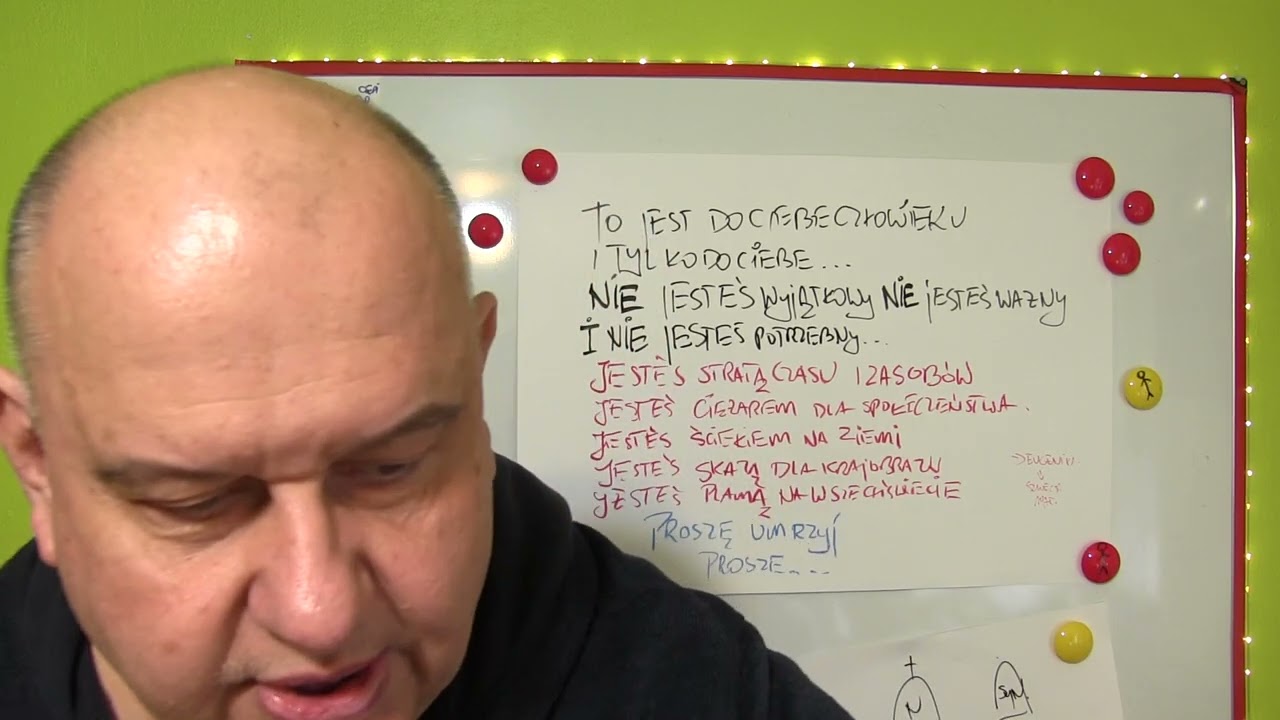 TO JEST DO CIEBIE CZŁOWIEKU
I TYLKO DO CIEBIE...
NIE JESTEŚ WYJĄTKOWY NIE JESTEŚ WAŻNY
I NIE JESTEŚ POTRZEBNY...
JESTEŚ STRATĄ CZASU I ZASOBÓW
JESTEŚ CIĘŻAREM DLA SPOŁECZEŃSTWA.
JESTEŚ ŚCIEKIEM NA ZIEMI
JESTEŚ SKAZĄ DLA KRAJOBRAZU
JESTEŚ PLAMĄ NA WSZECHŚWIECIE
PROSZĘ UMRZYJ
PROSZE....
N
SYN